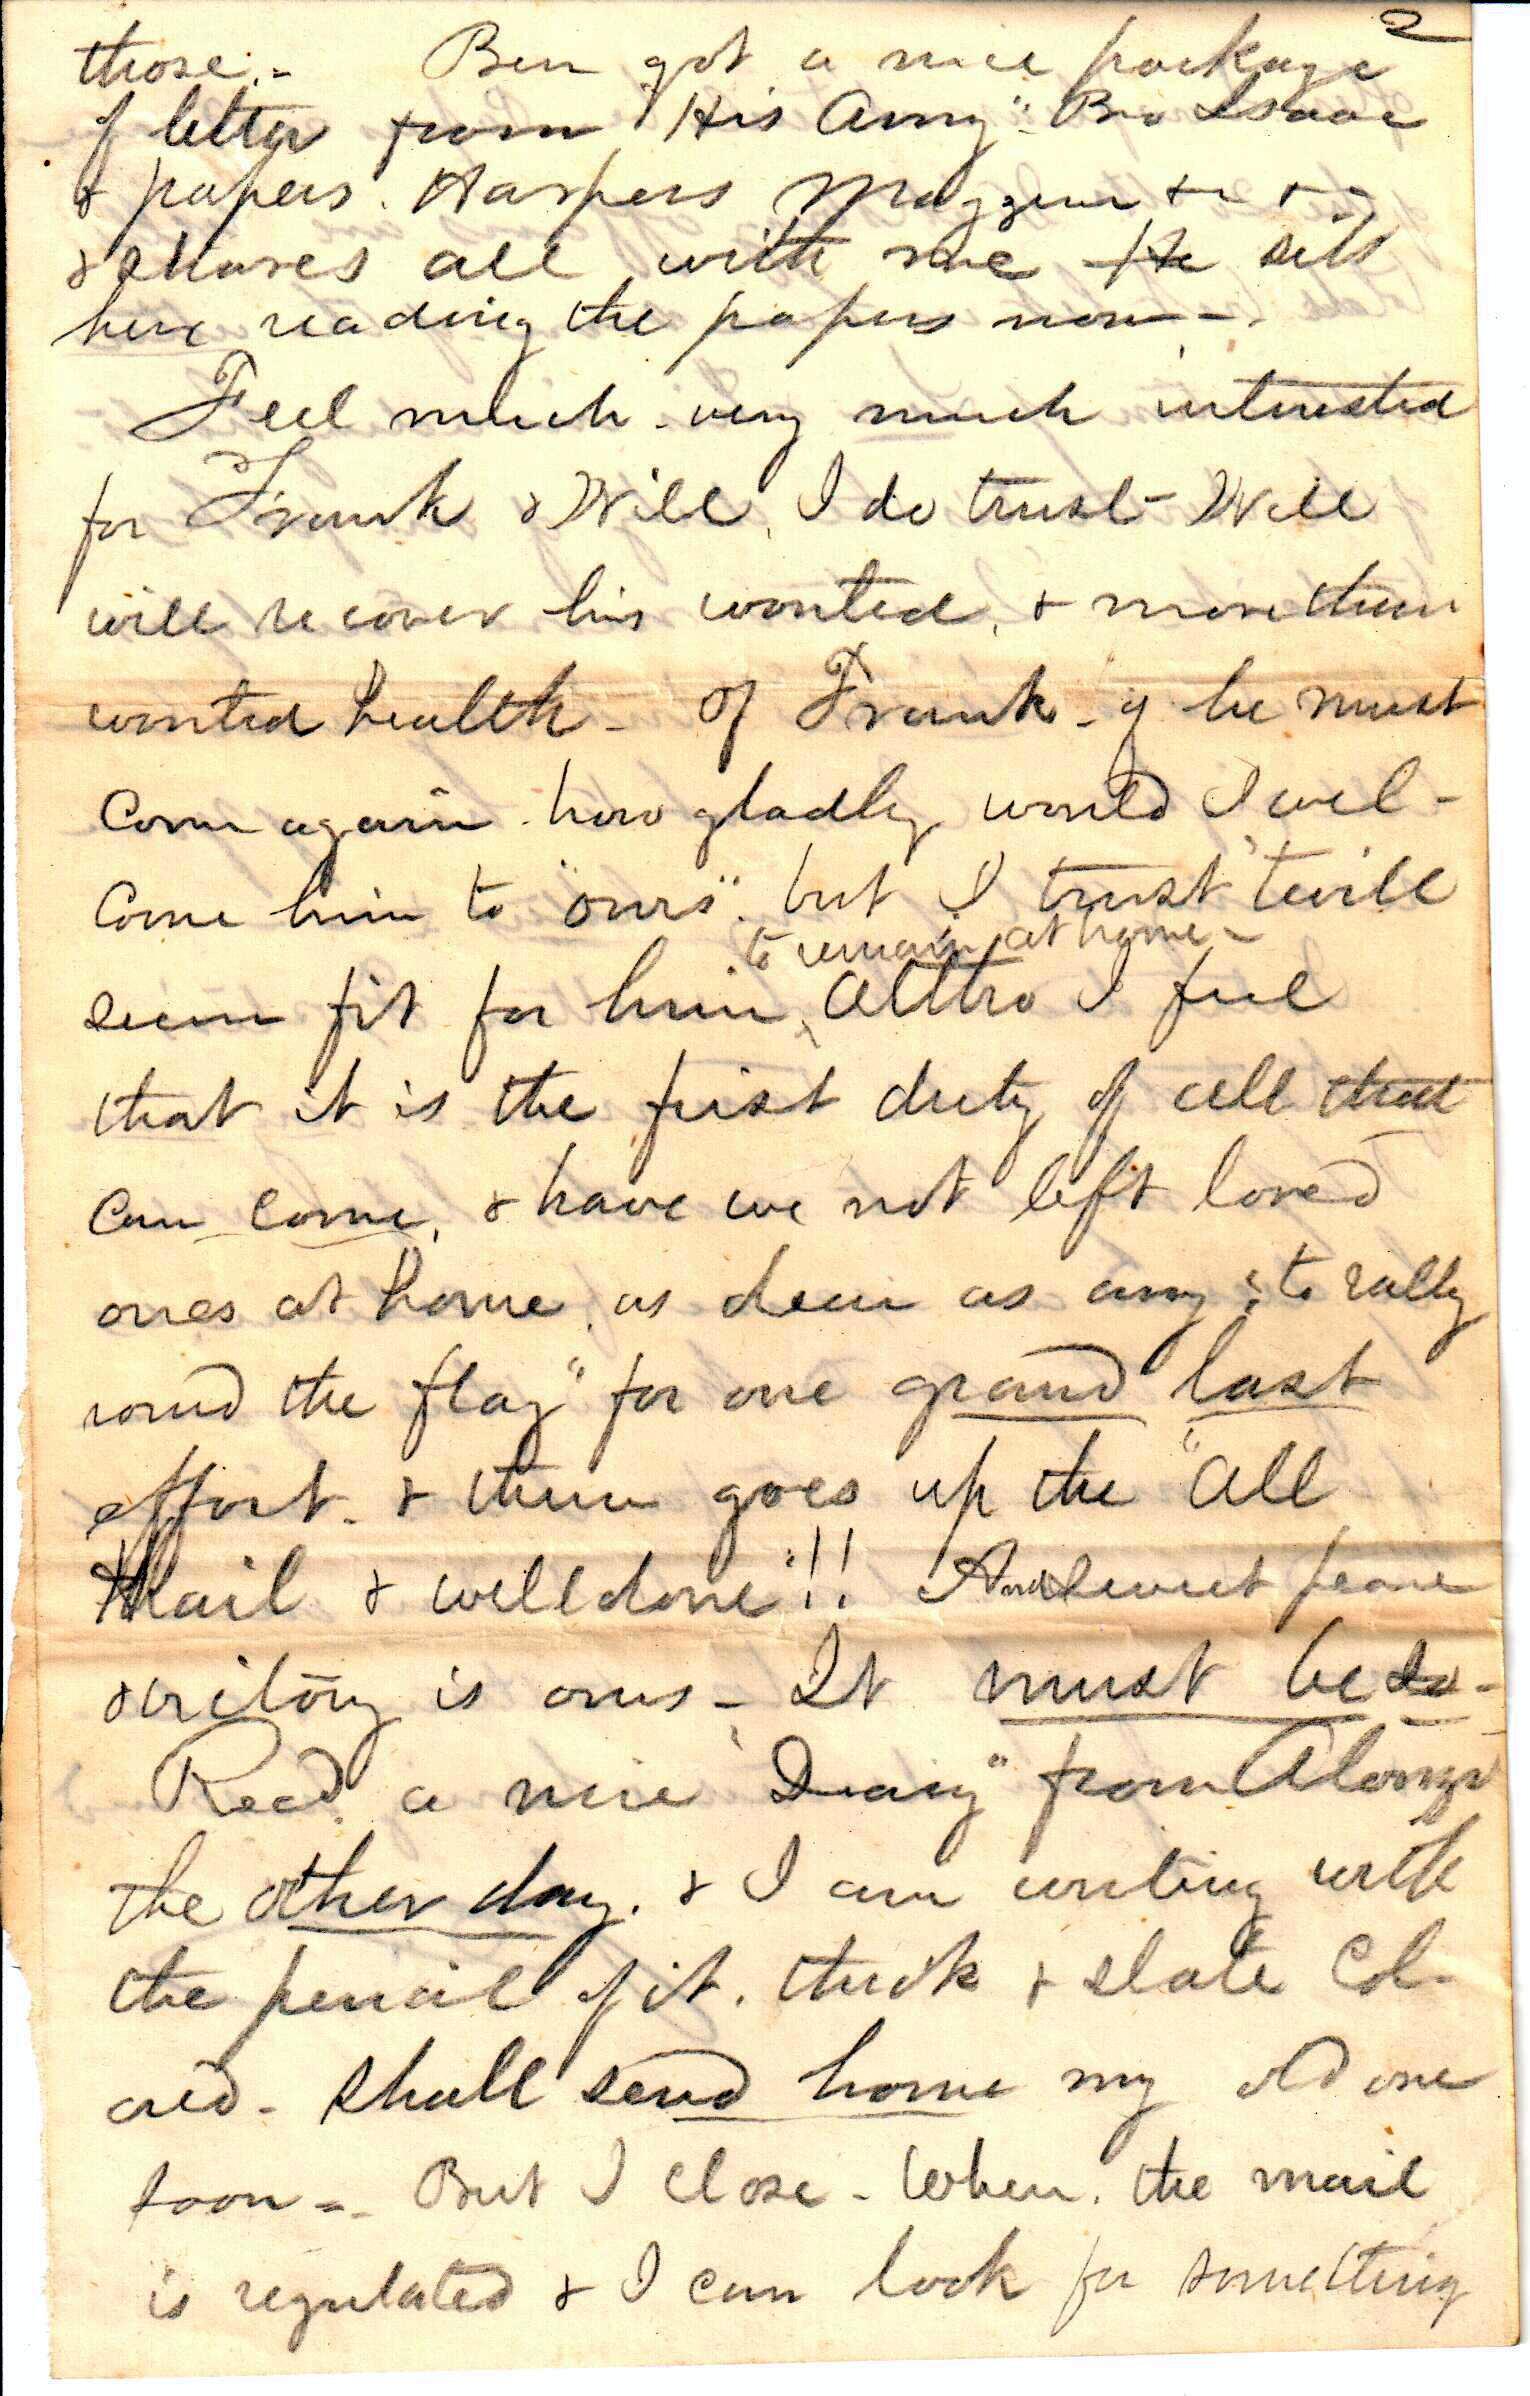 2
those.- Ben got a nice package
of letter from "His Amy" Bro Isaac
& papers. Harpers Magzine &c &c
& shares all with me He sits
here reading the papers now -.
Feel much - very much interested
for Frank & Will, I do trust - Will
will recover his wonted, & more than
wonted health - Of Frank - if he must
come again. how gladly would I wel-
come him to "ours". but I trust 'twill
to remain at home -
seem fit for him, Altho I feel
that it is the first duty of all that
can come, & have we not left loved
ones at home, as dear as any "to rally
round the flag" for one grand last
effort. & then goes up the "All
Hail & well done"!! And sweet peace
& victory is ours - It must be so -
Recd. a nice "Diary" from Alonzo
the other day. & I am writing with
the pencil of it. thick & slate col-
ored - Shall send home my old one
soon -. But I close - When. the mail
is regulated & I can look for something